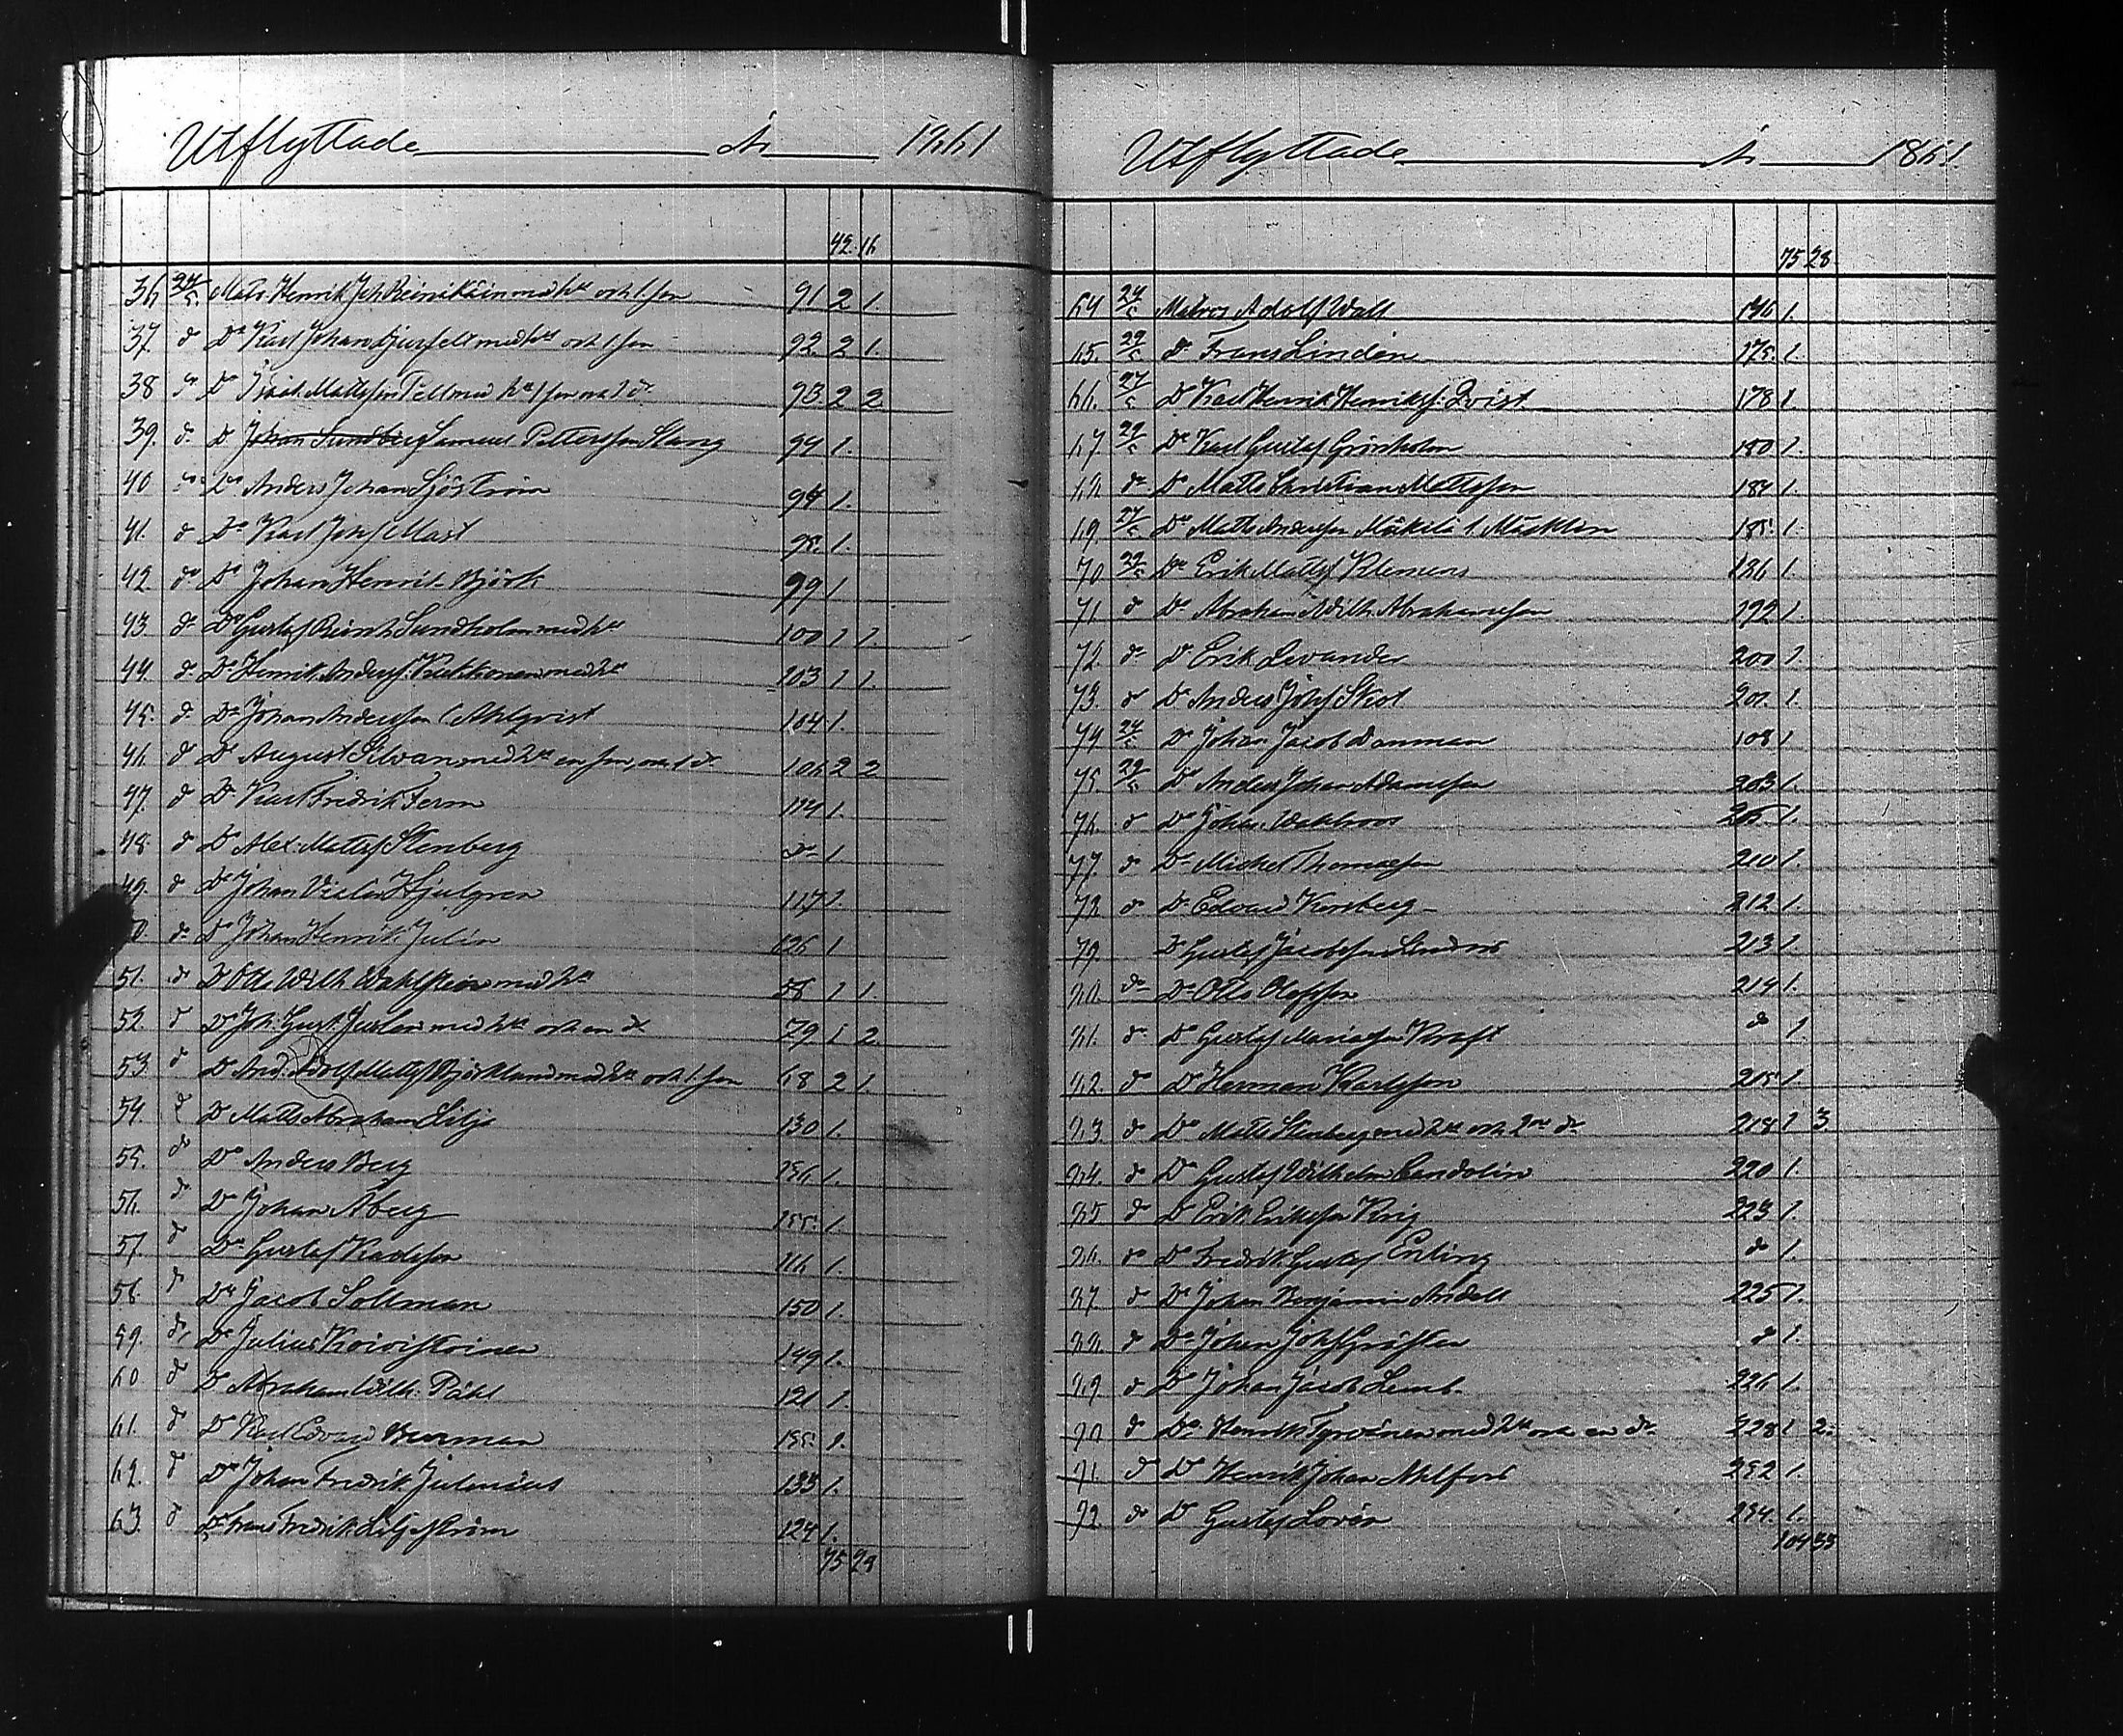 Utflyttade År 1861
42. 16
36 24/5 Matr. Henrik Joh. Reinikäin med hu och 1 son 91 2 1.
37. do Do Karl Johan Bjurfelt med hu och 1 son 92. 2 1.
38 do Do Isaak Mattsson Tell med hu 1 son och 1 dr 93 2 2
39. do Do Johan Sundberg Samuel Pettersson Stang 94 1.
40 do Do Anders Johan Sjöström 94 1.
41. do Do Karl Josef Mast 95. 1.
42. do Do Johan Henrik Björk 99 1
43. do Do Gustaf Reinh. Sundholm med hu 100 1 1.
44. do Do Henrik Anderss. Kukkonen med hu 103 1 1.
45. do Do Johan Andersson Ahlqvist 104 1.
46. do Do August Silvan med hu en son, och 1 dr 106 2 2
47. do Do Karl Fredrik Ferm 114 1.
48. do Do Alex. Matts. Stenberg do 1.
49. do Do Johan Hjulgren 117 1.
50. do Do Johan Henrik Julin 126 1
51. do Do Otto Wilh. Wahlsten med hu 58 1 1.
52. do Do Joh. Gust. Juslen med hu och en dr 79 1 2
53. do Do And. Adolf Matts. Björklund med hu och 1 son 68 2 1.
54. do Do Matts Abraham Lilja 130 1.
55. do Do Anders Berg 156 1.
56. do Do Johan Åberg 155. 1.
57. do Do Gustaf Karlsson 116 1.
58. do Do Jacob Sollman 150 1.
59. do Do Julius Koivistoinen 149 1.
60 do Do Abraham Wilh. Påhl 121 1.
61. do Do Karl Edvard Burman 155. 1.
62. do Do Johan Fredrik Julenius 133 1.
63. do Do Frans Fredrik Liljeström 124 1.
75 28
Utflyttade År 1861.
75 28
64 24/5 Matros Adolf Wall 146 1.
65. 29/5 Do Frans Linden 175. 1.
66. 27/5 Do Karl Henrik Henrikss. Qvist 178 1.
67. 29/5 Do Karl Gustaf Grönholm 180 1.
68. do Do Matts Christian Mattsson 184 1.
69. 27/5 Do Matts Andersson Mäkelä l. Mäcklin 185. 1.
70 29/5 Do Erik Matts. Klemens 186 1.
71. do Do Abraham Wilh. Abrahamsson 192 1.
72. do Do Erik Levander 200 1
73. do Do Anders Josef Skot 201. 1.
74 24/5 Do Johan Jacob Danman 108 1
75. 29/5 Do Anders Johan Adamsson 203 1.
76. do Do Johan Wahlroos 205. 1.
77. do Do Michel Thomasson 210 1.
78 do Do Edvard Korsberg 212 1.
79. Do Gustaf Jacobsson Landros 213 1.
80. do Do Otto Olofsson 214 1.
81. do Do Gustaf Mariasson Kraft do 1.
82. do Do Herman Karlsson 215 1
83. do Do Matts Stenberg med hu och 2ne dr 218 1 3.
84. do Do Gustaf Wilhelm Sandelin 220 1.
85 do Do Erik Eriksson Krig 223 1.
86. do Do Fredrik Gustaf Enling do 1.
87. do Do Johan Benjamin Andell 225 1.
88. do Do Johan Josef do 1.
89 do Do Johan Jacob Lemb. 226 1.
90 do Do Henrik Tyrväinen med hu och en dr 228 1 2.
91 do Do Henrik Johan Ahlfors 232 1.
92 do Do Gustaf Lovén 234. 1.
104 33